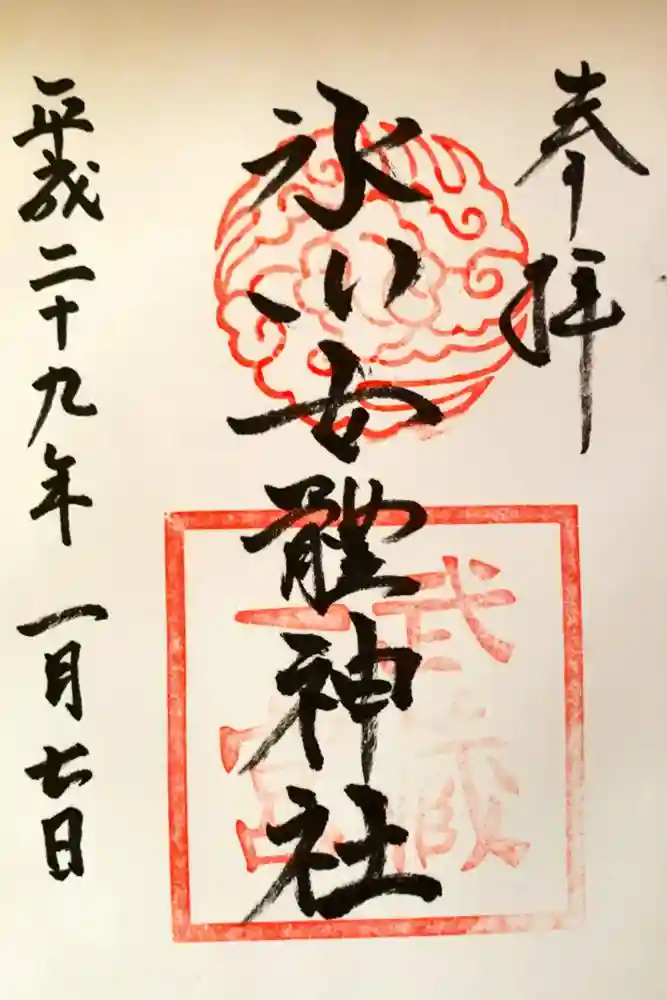 奉拝
氷川女體神社
武蔵
一宮
平成二十九年 一月七日